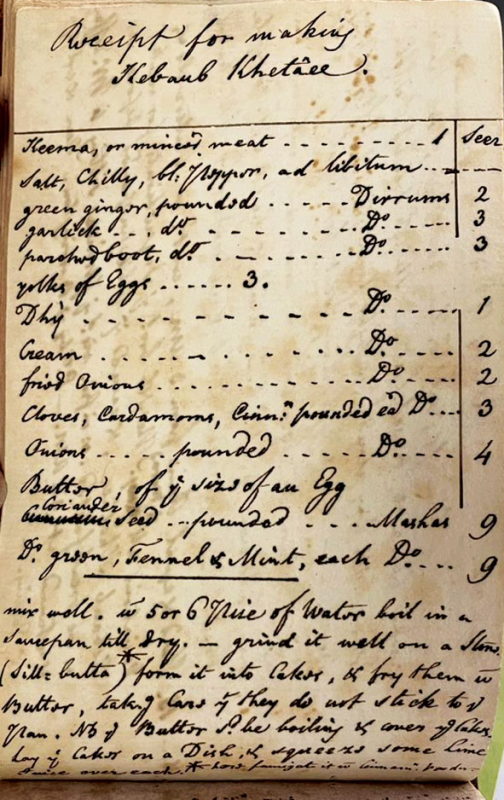 Receipt for making
Kebaub Khetâee.
Keema, or minced meat - - - - - - - - - 1 Seer
Salt, Chilly, bl: Pepper, ad libitum - - -
green ginger, pounded - - - - - Dirrums 2
garlick - - - do - - - - - - - - Do - - - - 3
parched boot, do - - - - - - - Do - - - - 3
yolks of Eggs - - - - - - 3.
Dhy - - - - - - - - - - - - Do - - - - 1
Cream - - - - - - - - - - - Do - - - - 2
fried Onions - - - - - - - - - Do - - - - 2
Cloves, Cardamoms, Cinn:n pounded ea Do - - - 3
Onions - - - - - pounded - - - - - Do - - - - 4
Butter, of ye size of an Egg
Coriander Seed - - pounded - - - - Mashas 9
Do green, Fennel & Mint, each Do - - - - 9
mix well. w 5 or 6 Pice of Water boil in a
Saucepan till dry. — grind it well on a Stone
(Sill = butta)* form it into Cakes, & fry them w
Butter, takg Care yt they do not stick to ye
Pan. NB ye Butter sd be boiling & cover ye Cakes.
lay ye Cakes on a Dish, & squeeze some Lime
Juice over each. * here fumigate it w Cinnam: